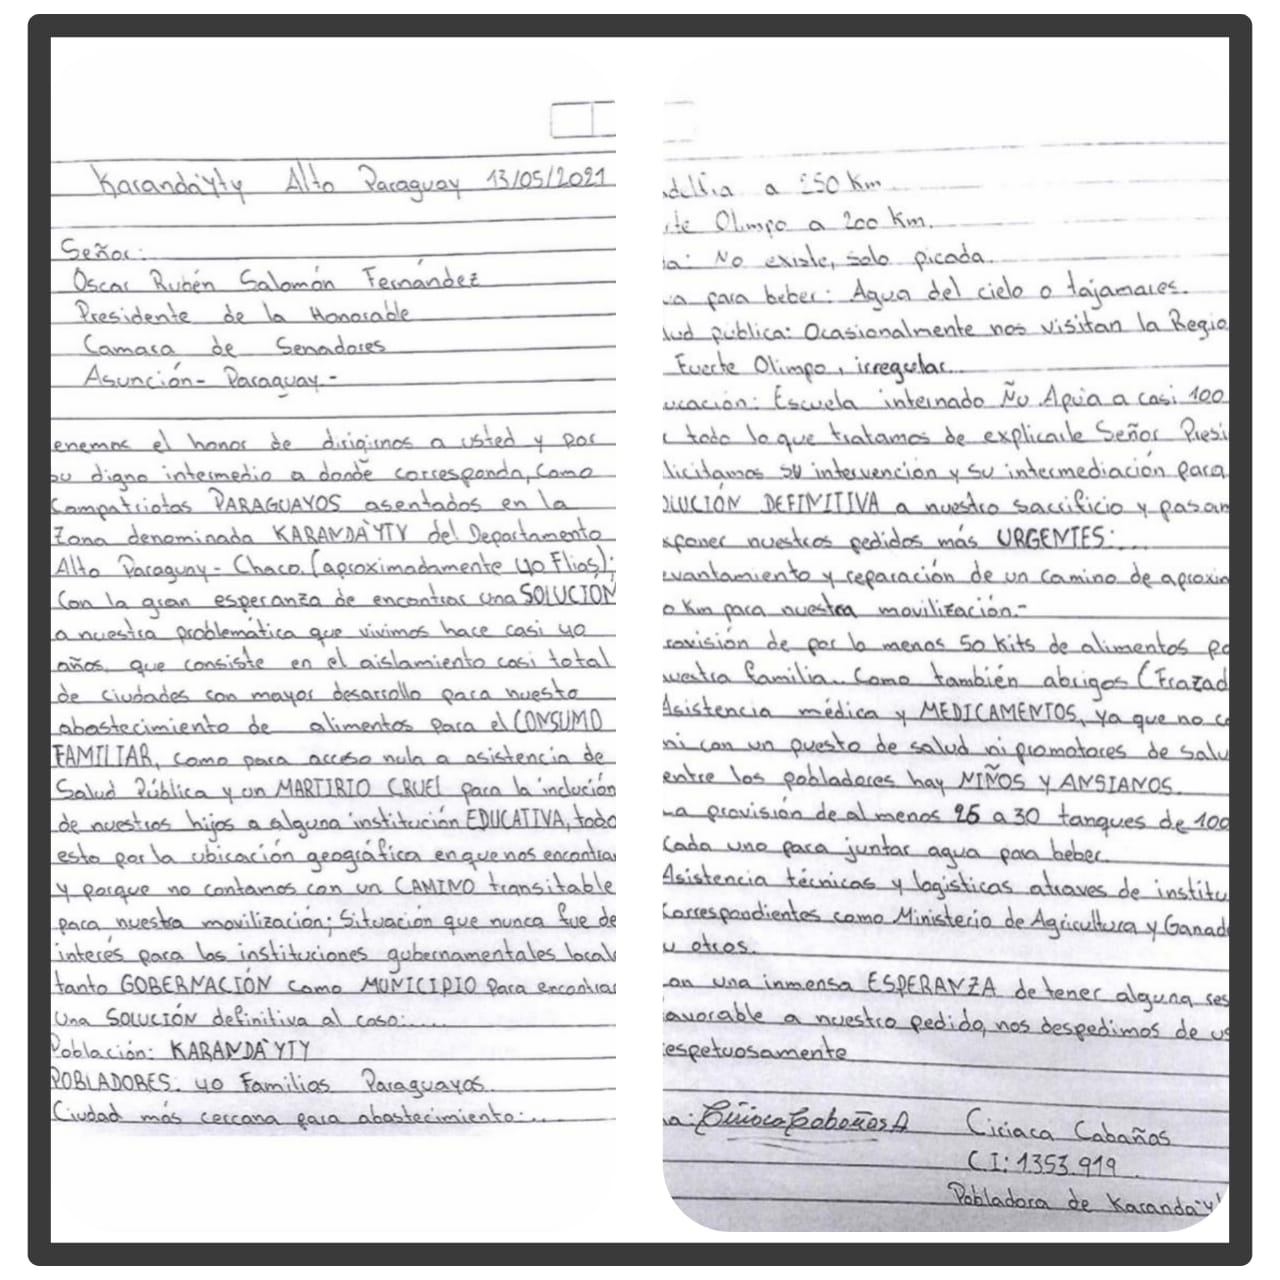 Karanda'yty Alto Paraguay 13/05/2021
Señor:
Oscar Rubén Salomón Fernández
Presidente de la Honorable
Camara de Senadores
Asunción- Paraguay.-
enemos el honor de dirigirnos a usted y por
su digno intermedio a donde corresponda, Como
Compatriotas PARAGUAYOS asentados en la
Zona denominada KARANDA'YTY del Departamento
Alto Paraguay - Chaco. (aproximadamente 40 Flias);
Con la gran esperanza de encontrar una SOLUCIÓN
a nuestra problemática que vivimos hace casi 40
años, que consiste en el aislamiento casi total
de ciudades con mayor desarrollo para nuesto
abastecimiento de alimentos para el CONSUMO
FAMILIAR, como para acceso nula a asistencia de
Salud Pública y un MARTIRIO CRUEL para la inclución
de nuestros hijos a alguna institución EDUCATIVA, todo
esto por la ubicación geográfica en que nos encontra
y porque no contamos con un CAMINO transitable
para nuestra movilización; Situación que nunca fue de
interés para las instituciones gubernamentales local
tanto GOBERNACIÓN como MUNICIPIO para encontrar
Una SOLUCIÓN definitiva al caso:.....
Población: KARANDA'YTY
POBLADORES: 40 Familias Paraguayas.
Ciudad más cercana para abastecimiento:...
delfia a 250 Km
rte Olimpo a 200 Km.
a: No existe, solo picada.
ua para beber: Agua del cielo o tajamares.
lud pública: Ocasionalmente nos visitan la Regio
Fuerte Olimpo, irregular...
ucación: Escuela internado Ñu Apúa a casi 100
r todo lo que tratamos de explicarle Señor Presi
licitamos su intervención y su intermediación para
OLUCIÓN DEFINITIVA a nuestro sacrificio y pasam
xponer nuestros pedidos más URGENTES:...
evantamiento y reparación de un camino de aproxim
o Km para nuestra movilización.-
rovisión de por lo menos 50 Kits de alimentos pa
uestra familia. Como también abrigos (Frazad
Asistencia médica y MEDICAMENTOS, ya que no co
ni con un puesto de salud ni promotores de salu
entre los pobladores hay NIÑOS Y ANSIANOS.
La provisión de al menos 25 a 30 tanques de 100
Cada uno para juntar agua para beber.
Asistencia técnicas y logísticas atraves de institu
Correspondientes como Ministerio de Agricultura y Ganad
u otros.
on una inmensa ESPERANZA de tener alguna res
avorable a nuestro pedido, nos despedimos de us
espetuosamente
a: Ciriaca Cabañas A Ciriaca Cabaños
C I: 1353.919
Pobladora de Karanda'y